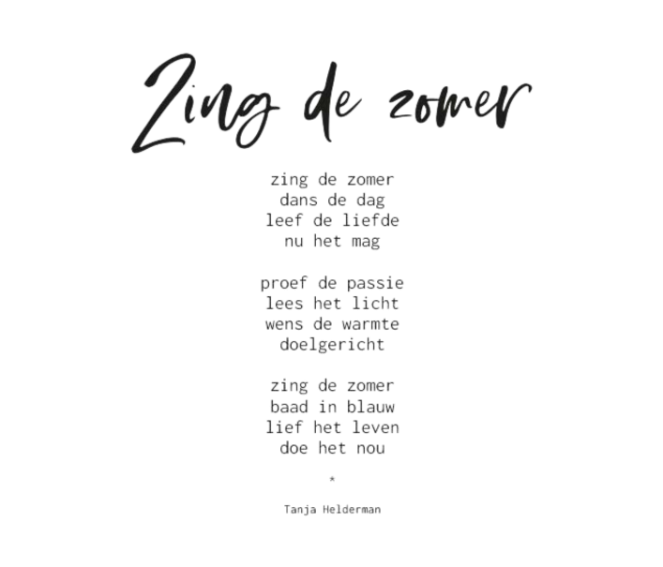 Zing de zomer
zing de zomer
dans de dag
leef de liefde
nu het mag
proef de passie
lees het licht
wens de warmte
doelgericht
zing de zomer
baad in blauw
lief het leven
doe het nou
*
Tanja Helderman